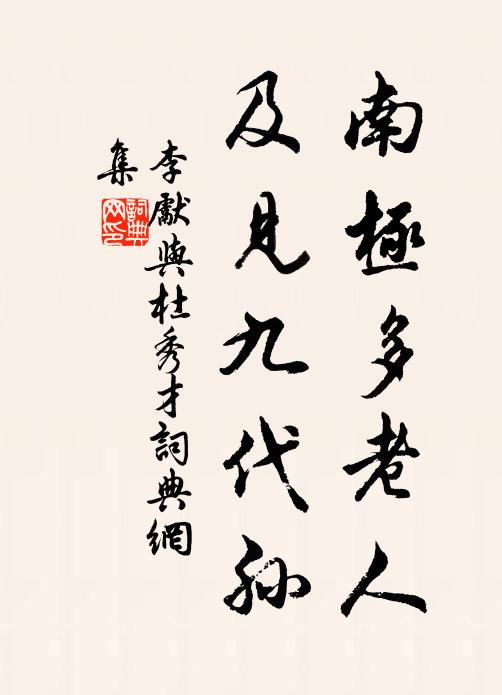 南極多老人
及見九代孙
李獻與杜秀才詞典網
集
詞典网印